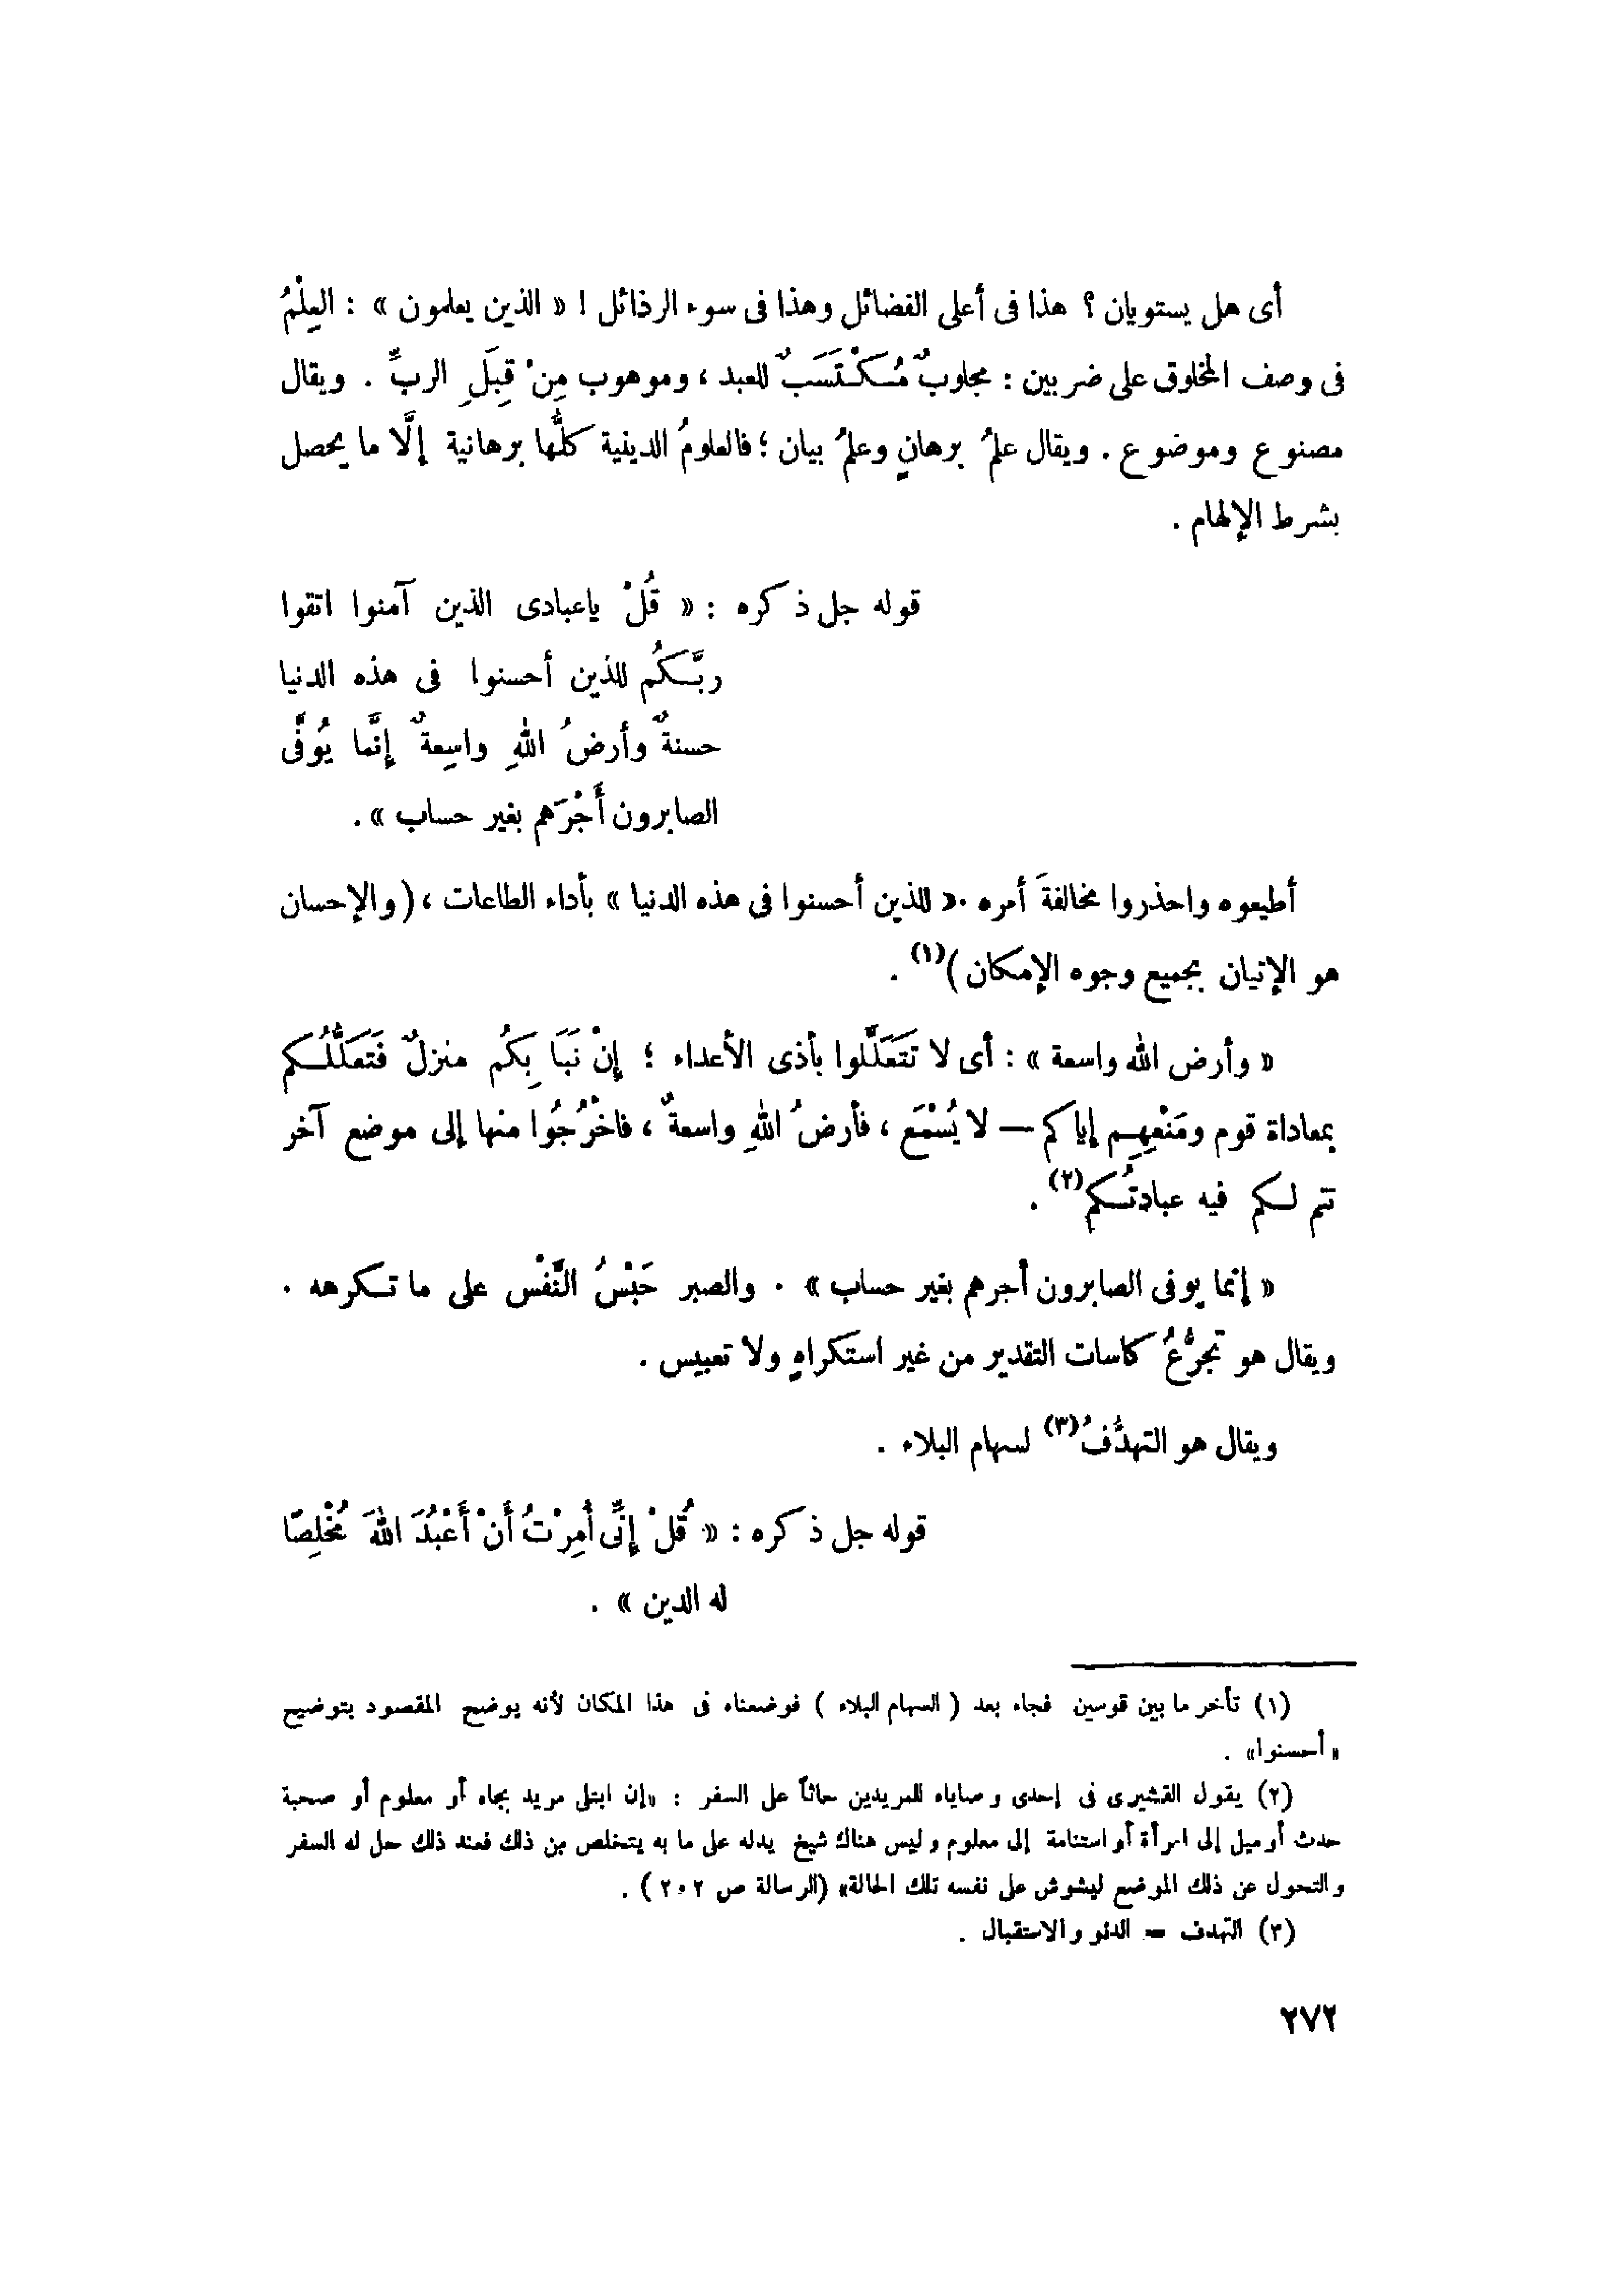 أى هل يستويان ؟ هذا فى أعلى الفضائل وهذا فى سوء الرذائل ! « الذين يعلمون » : العِلْمُ
فى وصف المخلوق على ضربين : مجلوبٌ مُكْتَسَبٌ للعبد ، وموهوب مِنْ قِبَلِ الربِّ . ويقال
مصنوع وموضوع . ويقال علمُ برهانٍ وعلمُ بيان ؛ فالعلومُ الدينية كلُّها برهانية إلَّا ما يحصل
بشرط الإلهام .
قوله جل ذكره : « قُلْ ياعبادى الذين آمنوا اتقوا
ربَّكُم للذين أحسنوا فى هذه الدنيا
حسنةٌ وأرضُ اللهِ واسِعةٌ إنَّما يُوَفَّى
الصابرون أَجْرَهم بغير حساب » .
أطيعوه واحذروا مخالفةَ أمره . « للذين أحسنوا فى هذه الدنيا » بأداء الطاعات ، ( والإحسان
هو الإتيان بجميع وجوه الإمكان )(١) .
« وأرض الله واسعة » : أى لا تتَعَلَّلوا بأذى الأعداء ؛ إنْ نَبَا بِكُم منزلٌ فَتَعَلُّلُكم
بمعاداة قوم ومَنْعِهِم إياكم — لا يُسْمَع ، فأرضُ اللهِ واسعةٌ ، فاخْرُجُوا منها إلى موضع آخر
تتم لكم فيه عبادتُكم(٢) .
« إنما يوفى الصابرون أجرهم بغير حساب » . والصبر حَبْسُ النَّفْس على ما تكرهه .
ويقال هو تجرُّعُ كاسات التقدير من غير استكراهٍ ولا تعبيس .
ويقال هو التهدُّفُ(٣) لسهام البلاء .
قوله جل ذكره : « قُلْ إنِّى أُمِرْتُ أَنْ أَعْبُدَ اللهَ مُخْلِصًا
له الدين » .
(١) تأخر ما بين قوسين فجاء بعد ( السهام البلاء ) فوضعناه فى هذا المكان لأنه يوضح المقصود بتوضيح
«أحسنوا» .
(٢) يقول القشيرى فى إحدى وصاياه للمريدين حاثاً على السفر : «إن ابتلى مريد بجاه أو معلوم أو صحبة
حدث أو ميل إلى امرأة أو استنامة إلى معلوم وليس هناك شيخ يدله على ما به يتخلص من ذلك فعند ذلك حل له السفر
والتحول عن ذلك الموضع ليشوش على نفسه تلك الحالة» (الرسالة ص ٢٠٢ ) .
(٣) التهدف = الدنو والاستقبال .
٢٧٢